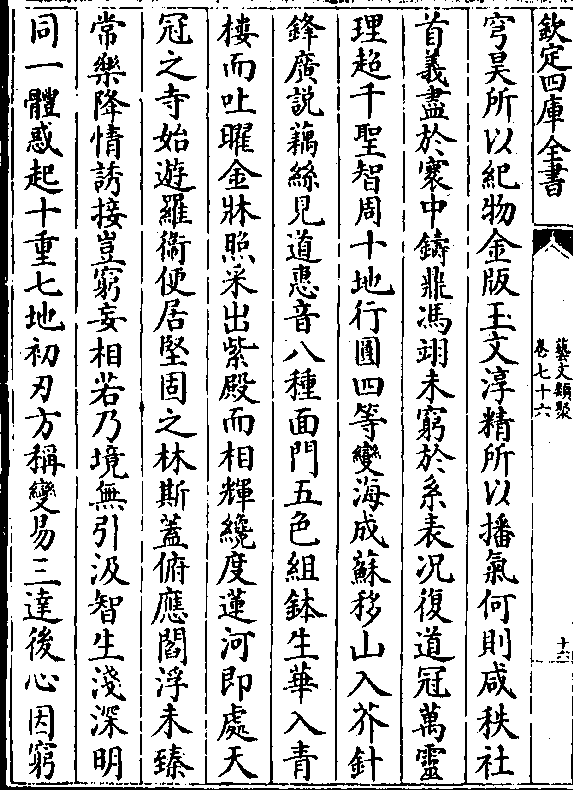 欽定四庫全書
藝文類聚
卷七十六
十六
穹昊所以紀物金版玉文淳精所以播氣何則咸秩社
首義盡於寰中鑄鼎馮翊未窮於系表況復道冠萬靈
理超千聖智周十地行圓四等變海成蘇移山入芥針
鋒廣説藕絲見道惠音八種面門五色組鉢生華入青
樓而吐曜金牀照采出紫殿而相輝纔度蓮河即處天
冠之寺始遊羅衛便居堅固之林斯蓋俯應閻浮未臻
常樂降情誘接豈窮妄相若乃境無引汲智生淺深明
同一體惑起十重七地初刃方稱變易三達後心因窮